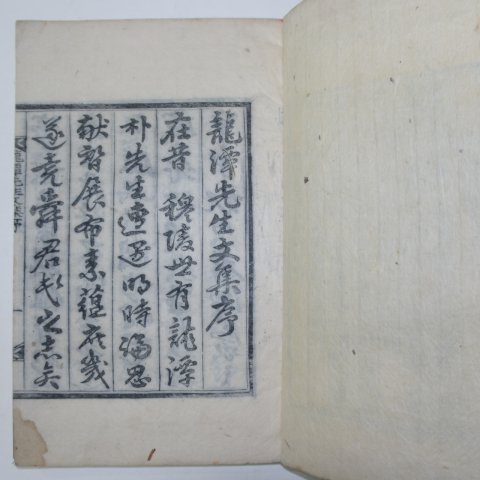 龍潭先生文集序
在昔 穆陵世有龍潭
朴先生遭遇明時論思
献替展布素蘊庶幾
遂堯舜君民之志矣